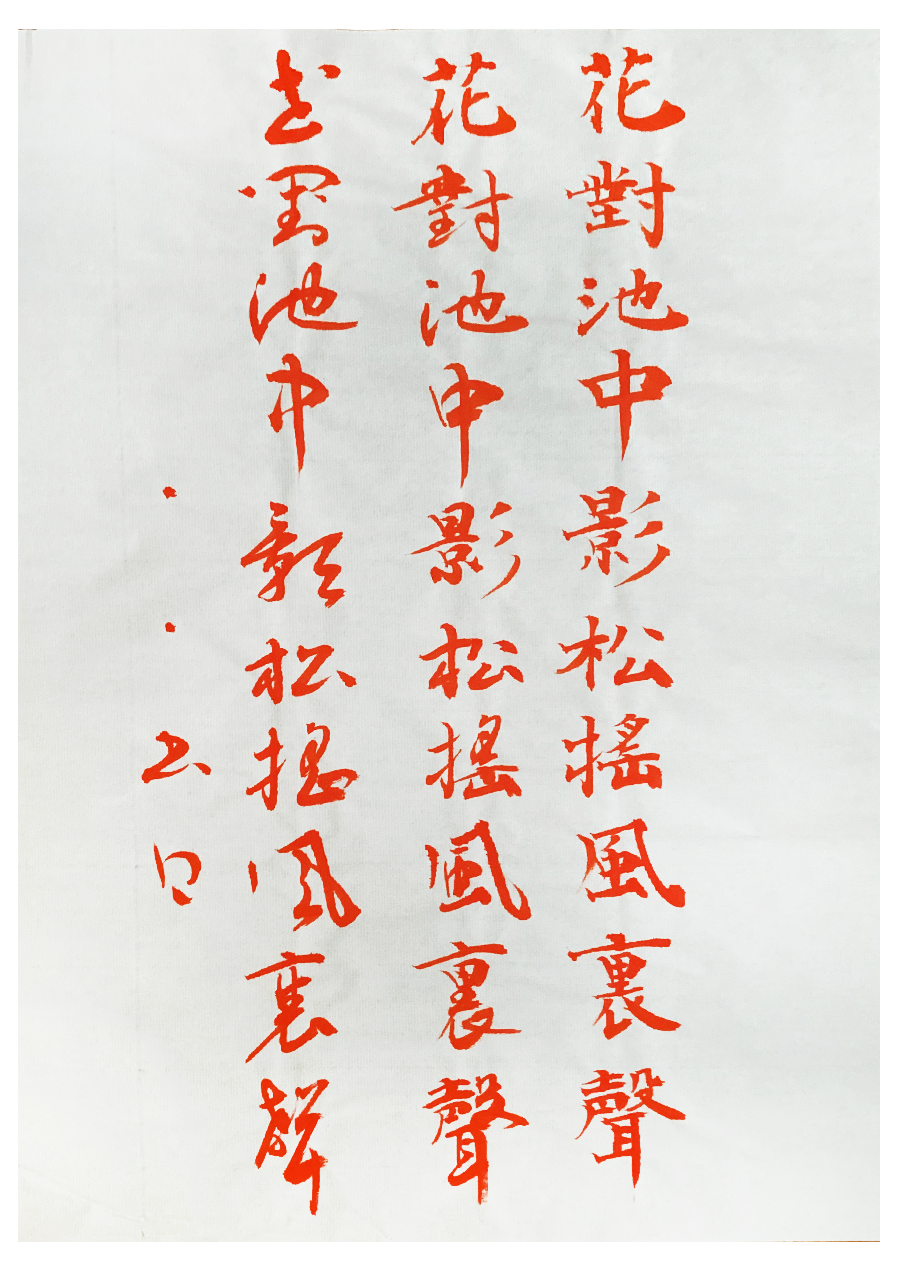 花對池中影松搖風裏聲
花對池中影松搖風裏聲
花對池中影松搖風裏聲